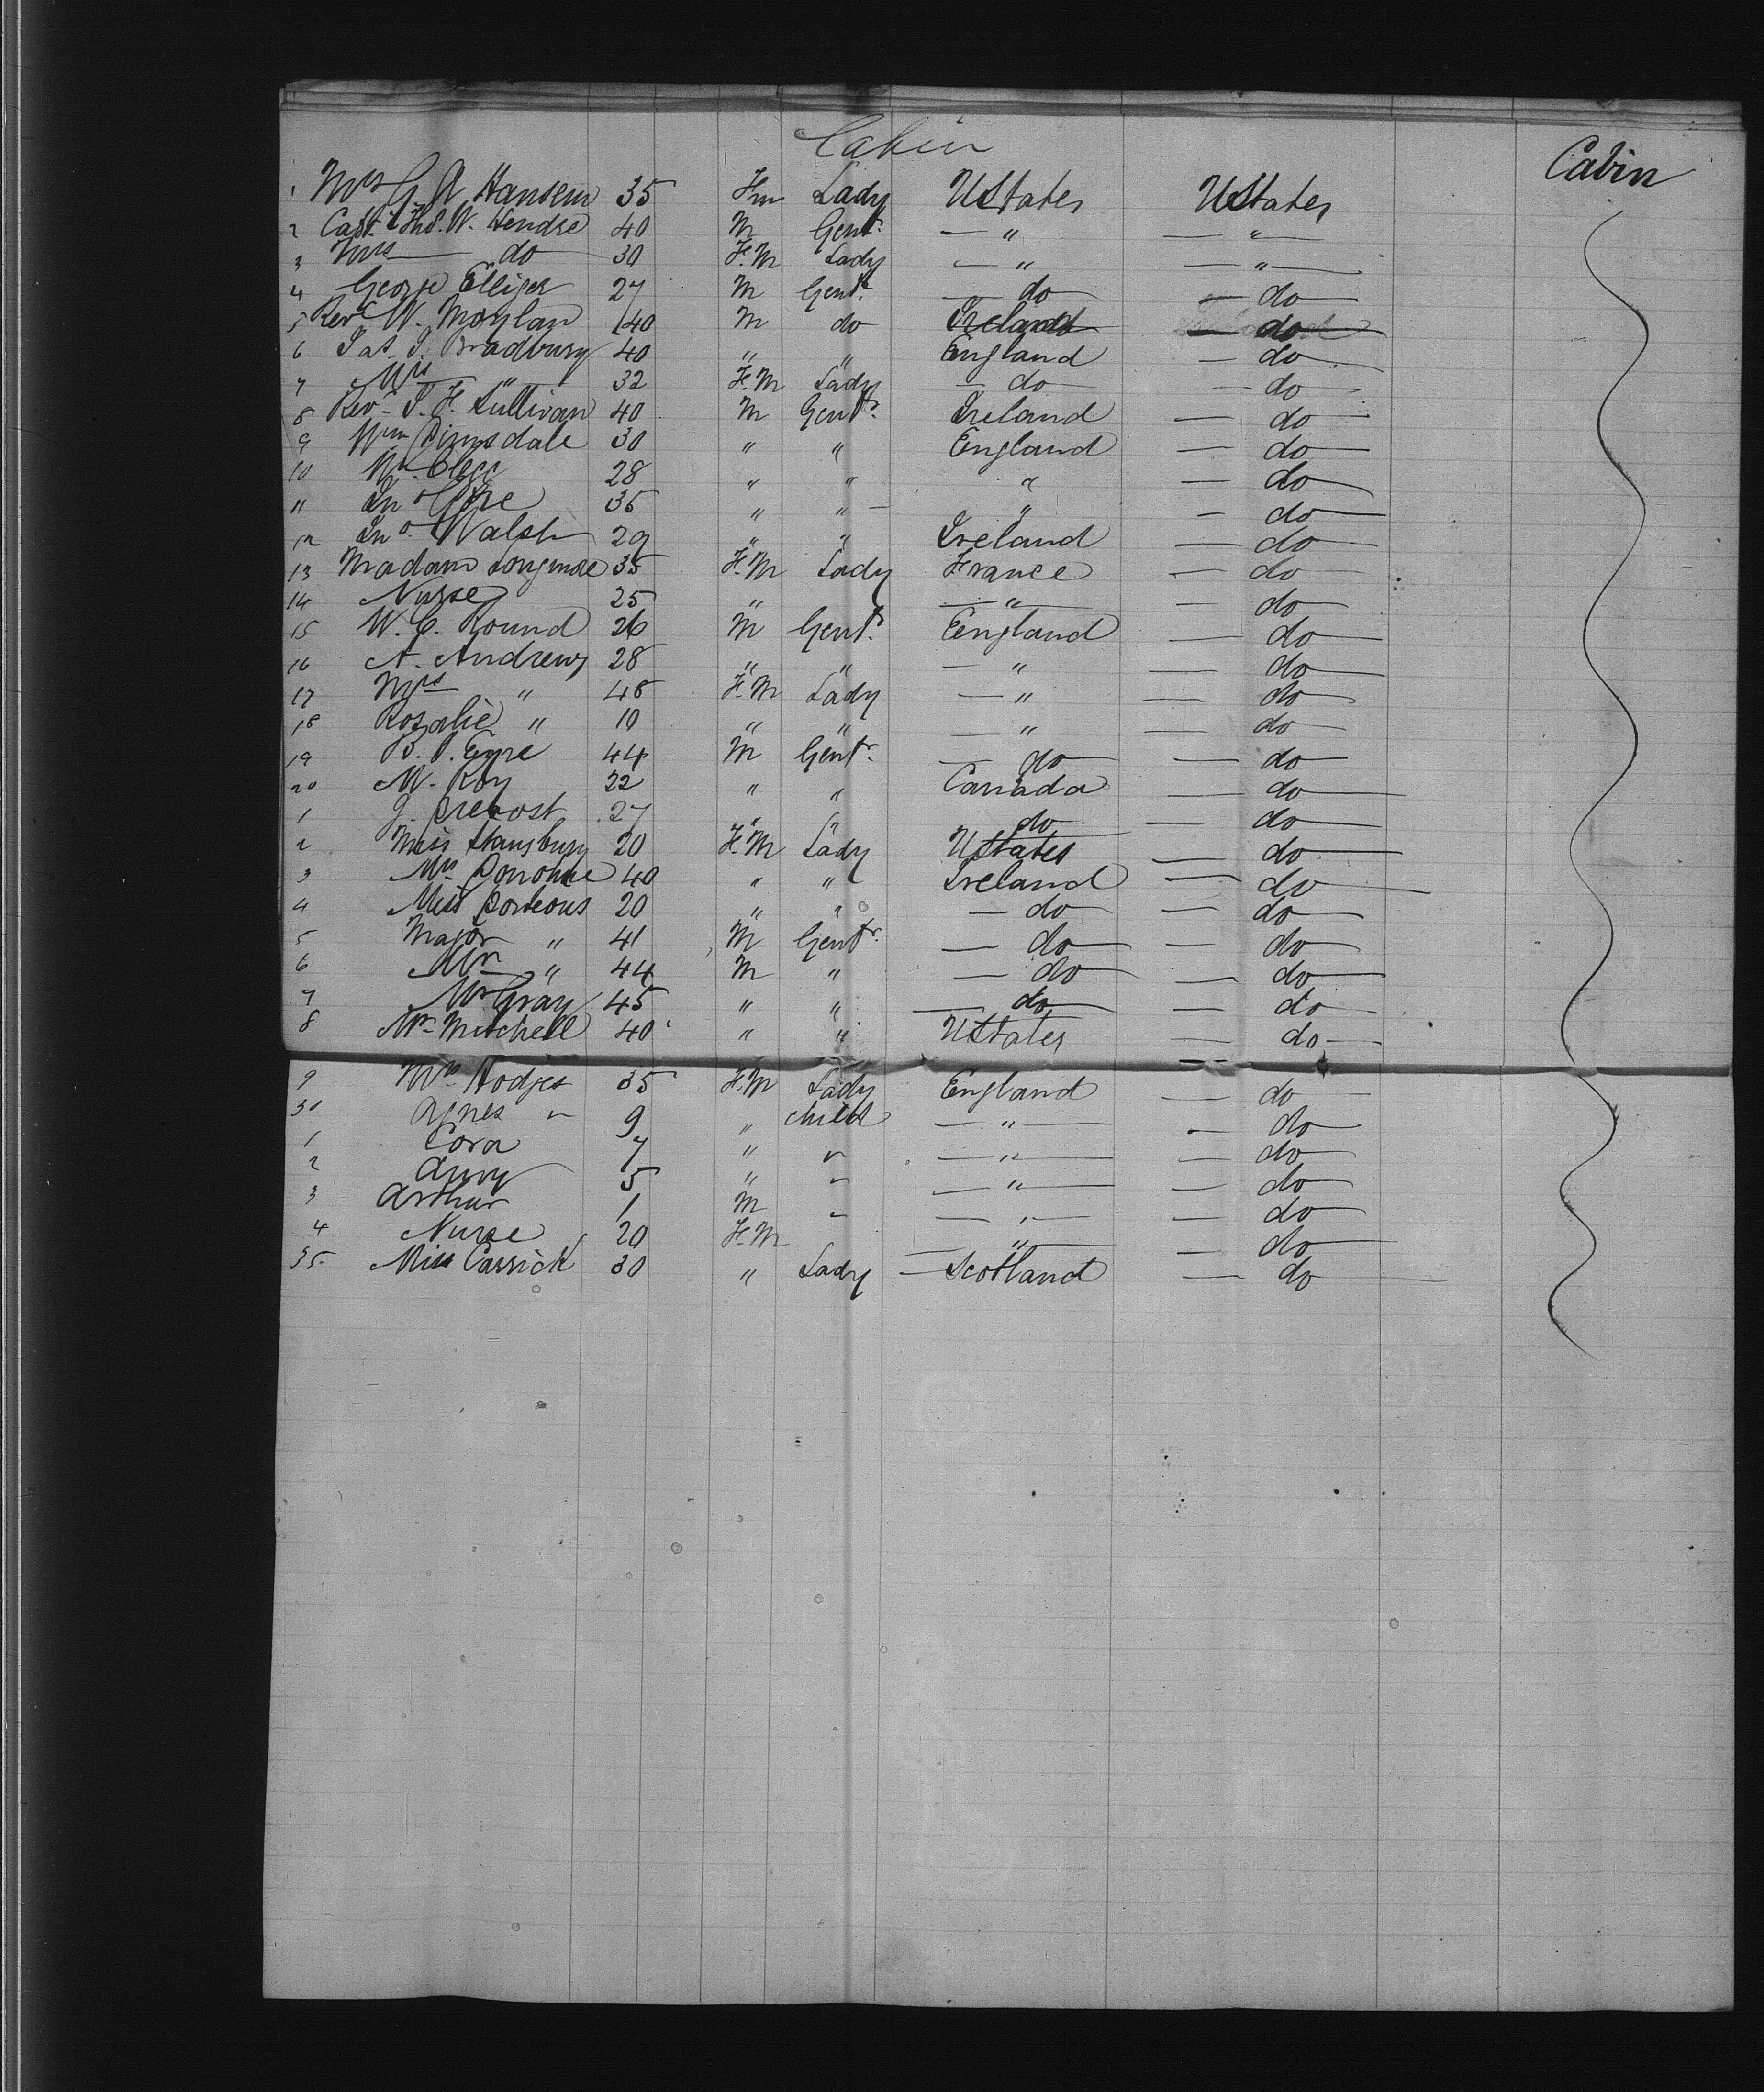 Cabin
Cabin
1 Mrs G A Hansem 35 Fm Lady UStates UStates
2 Capt. Thos. W. Hendre 40 M Gent. — " — — " —
3 Mrs — do 30 F.M Lady — " — " —
4 George Elliger 27 M Gent. — do — do
5 Revd W. Moylan 40 M do Ireland — do
6 Jas. J. Bradbury 40 " " England — do
7 Mrs " 32 F.M Lady — do — do
8 Revd J. F. Sullivan 40 M Gent. Ireland — do
9 Wm Dimsdale 30 " " England — do
10 Wm Clegg 28 " " " — do
11 Jno 35 " " — " — do
12 Jno. Walsh 29 " " Ireland — do
13 Madam Longmore 35 F.M Lady France — do
14 Nurse 25 " — " — — do
15 W. C. Round 26 M Gent. England — do
16 A. Andrews 28 " " — " — do
17 Mrs " 48 F.M Lady — " — do
18 Rosalie " 10 " " — " — do
19 B. P. Eyre 44 M Gent. — do — do
20 W. Roy 22 " " Canada — do
1 J. Prevost 27 " do — do
2 Miss Stansbury 20 F.M Lady UStates — do
3 Mrs Donohue 40 " " Ireland — do
4 Miss Porteous 20 " " — do — do
5 Major " 41 M Gent. — do — do
6 Mr " 44 M " — do — do
7 Mr Gray 45 " " — do — do
8 Mr Mitchell 40 " " UStates — do
9 Mrs Hodges 35 F.M Lady England — do
30 Agnes " 9 " child — " — — do
1 Cora 7 " " — " — — do
2 Amy 5 " " — " — — do
3 Arthur 1 M " — " — — do
4 Nurse 20 F.M — " — — do
35 Miss Carrick 30 " Lady — Scotland — do